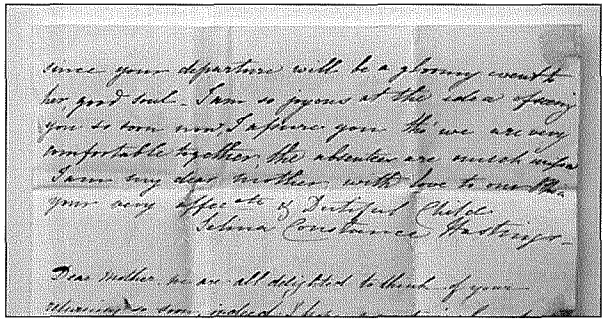 since your departure will be a gloomy event to
her, good soul - I am so joyous at the idea of seeing
you so soon now, I assure you tho' we are very
comfortable together, the absentees are much
I am my dear Mother, with love to
your very affecate & Dutiful Child
Selina Constance Hastings -
Dear Mother we are all delighted to think of your
returning so soon, indeed I